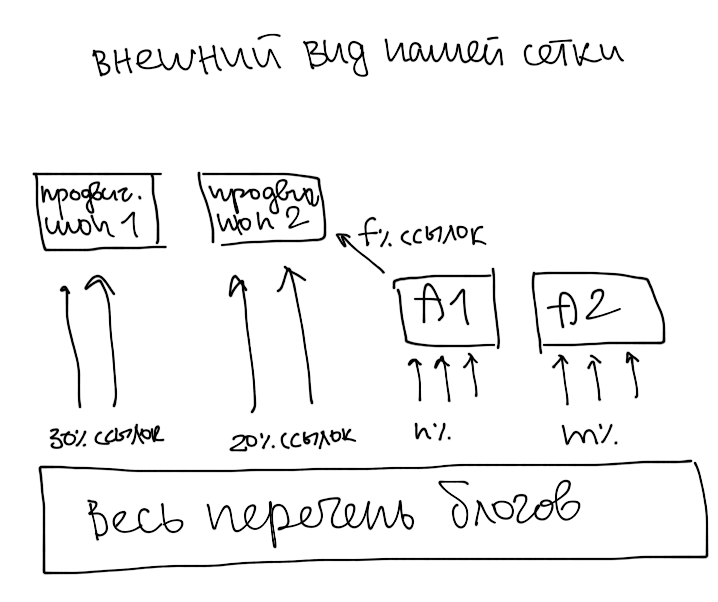 внешний вид нашей сетки
продвиг.
шоп 1
продвиг
шоп 2
f% ссылок
A1
A2
30% ссылок
20% ссылок
n%
m%
Весь перечень блогов